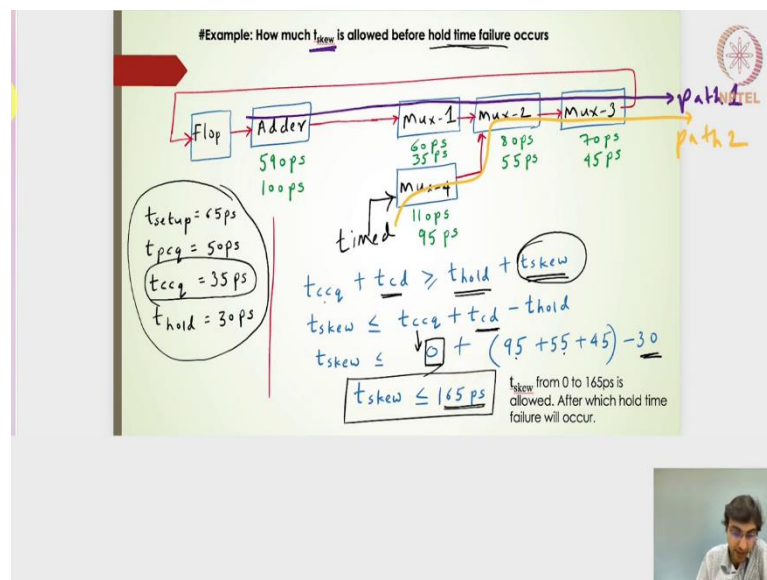 #Example: How much tskew is allowed before hold time failure occurs
NPTEL
path 1
path 2
Flop
Adder
Mux-1
Mux-2
Mux-3
590ps
100ps
60ps
35ps
80ps
55ps
70ps
45ps
Mux-4
110ps
95 ps
timed
tsetup = 65ps
tpcq = 50ps
tccq = 35 ps
thold = 30ps
tccq + tcd ⩾ thold + tskew
tskew ≤ tccq + tcd - thold
tskew ≤ 0 + (95 +55 +45) - 30
tskew ≤ 165 ps
tskew from 0 to 165ps is
allowed. After which hold time
failure will occur.